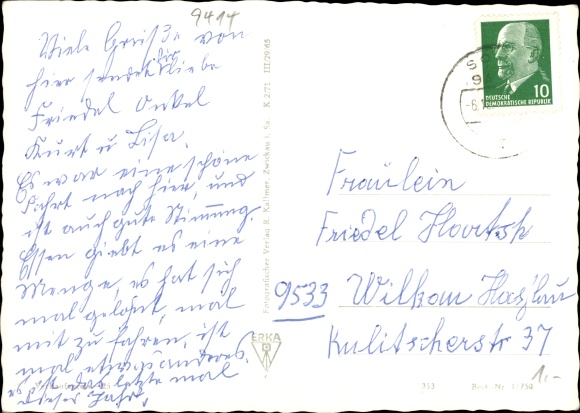 9414
Viele Grüße von
hier sendet dir liebe
Friedel Onkel
Kurt u Lisa.
Es war eine schöne
Fahrt nach hier, und
ist auch gute Stimmung.
Essen giebt es eine
Menge, es hat sich
mal gelohnt, mal
mit zu fahren, ist
mal etwas anderes.
es ist das letzte mal
dieses Jahr.
Fotografischer Verlag R. Kallmer Zwickau i. Sa. K 2/71 III/29/65
ERKA
10
DEUTSCHE
DEMOKRATISCHE REPUBLIK
Fräulein
Friedel
9533 Wilkau Haßlau
Kulitscherstr 37
353
Best.-Nr. 1/750
1,-